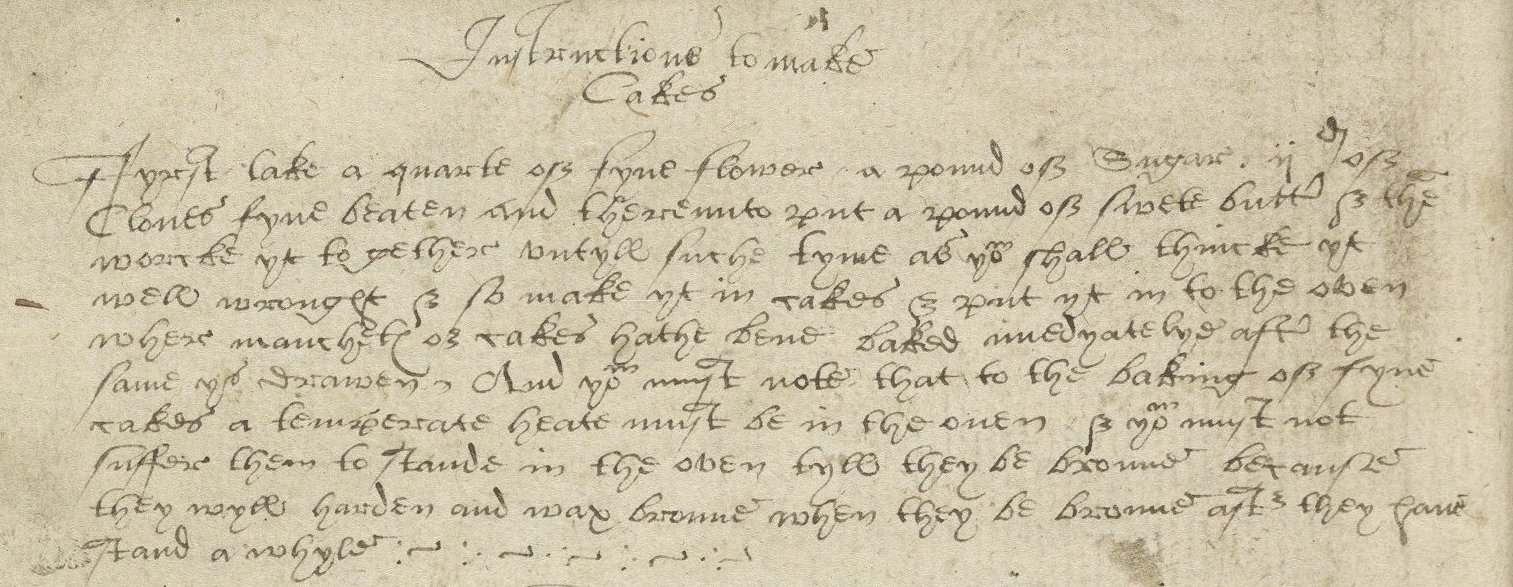 Instructions to make
Cakes
Fyrst take a quarte off fyne flower a pound off Sugar. ij d off
Cloues fyne beaten and therevnto put a pound off swete buttr & the
worcke yt together vntyll suche tyme as you shall thincke yt
well wrought & so make yt in cakes & put yt in to the oven
where manchets or cakes hathe bene baked imedyatelye aftr the
same ys drawen, And you must note that to the baking off fyne
cakes a temperate heate must be in the ouen & you must not
suffer them to stande in the oven tyll they be browne because
they wyll harden and wax browne when they be browne aftr they haue
stand a whyle